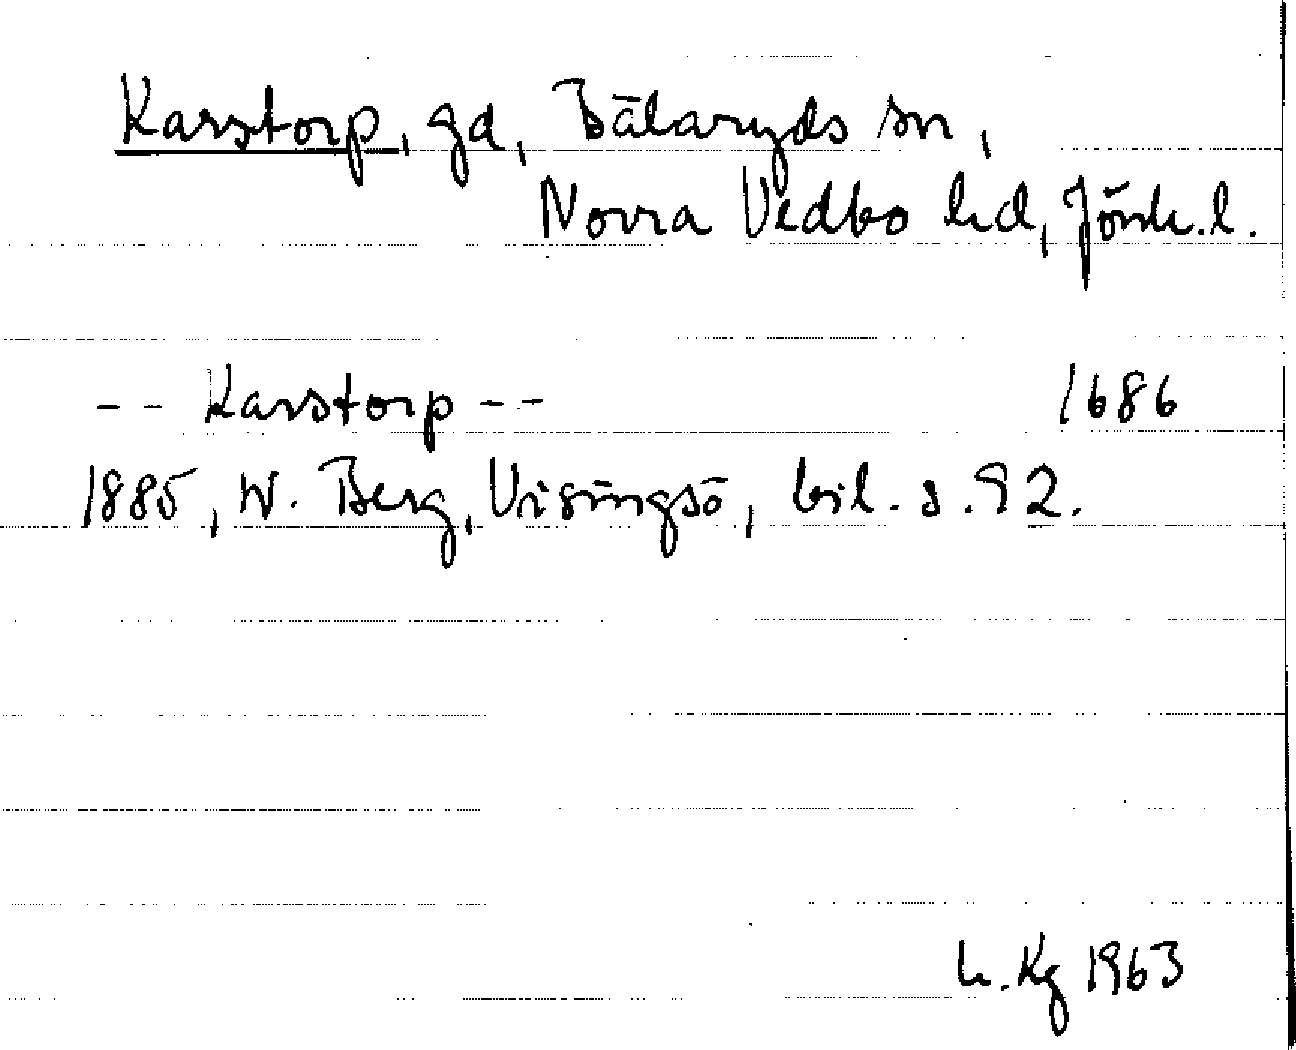 Karstorp, gd, Bälaryds sn,
Norra Vedbo hd, Jönk. l.
-- Karstorp -- 1686
1885, W. Berg, Visingsö, bil. s. 92.
h. Kg 1963